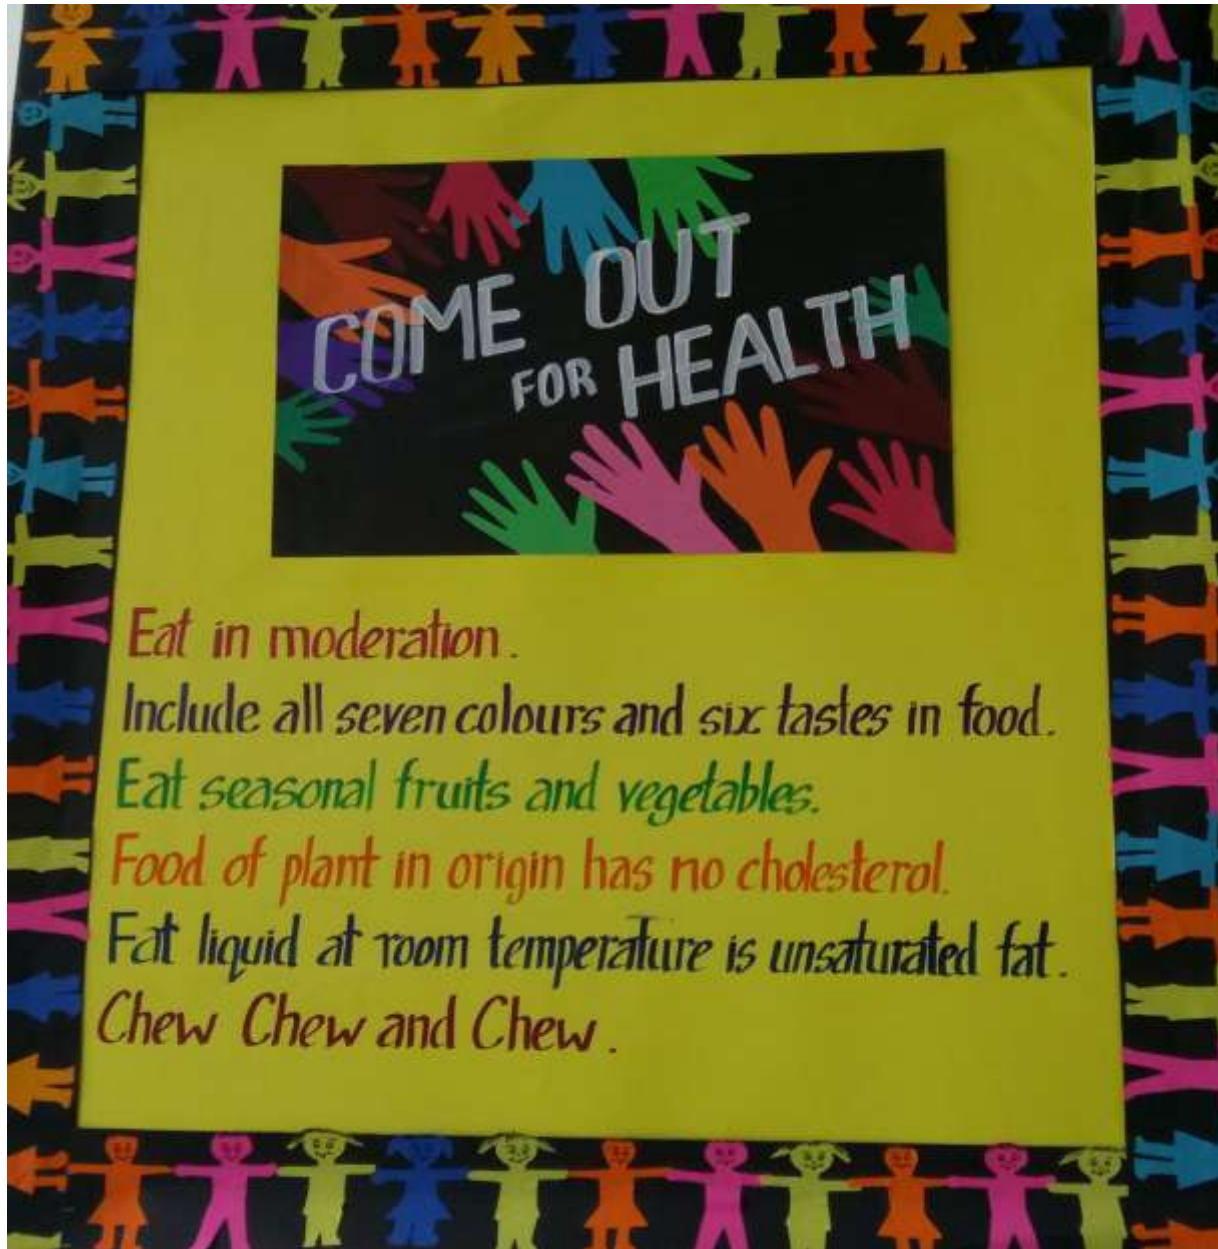 COME OUT
FOR HEALTH
Eat in moderation.
Include all seven colours and six tastes in food.
Eat seasonal fruits and vegetables.
Food of plant in origin has no cholesterol.
Fat liquid at room temperature is unsaturated fat.
Chew Chew and Chew.